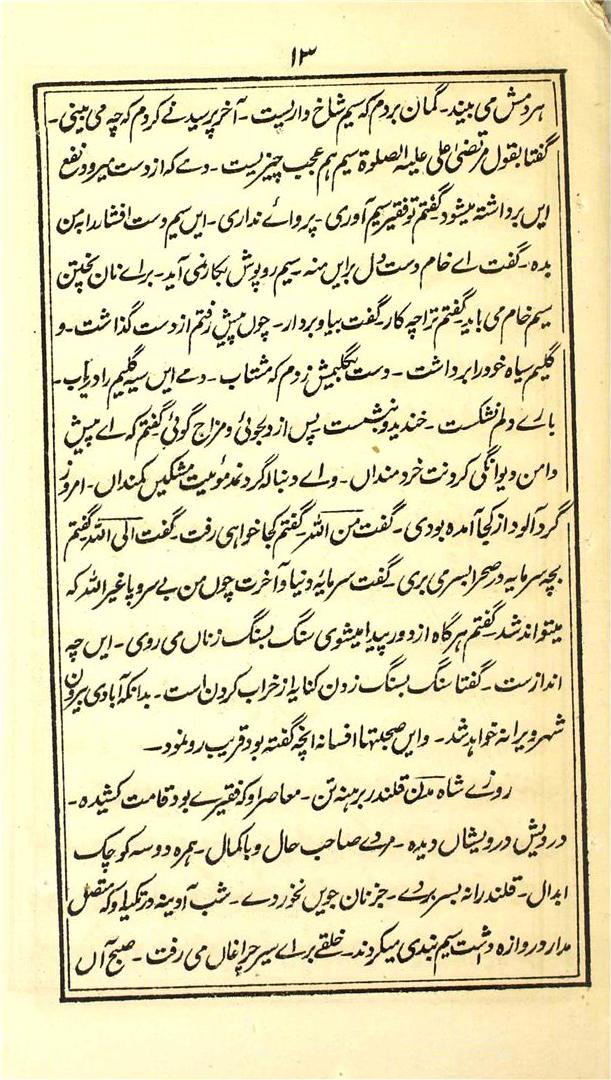 ۱۳
ہردمش می بیند۔ گمان بردم کہ سیم شاخ داریست۔ آخر پرسیدنے کردم کہ چہ می بینی۔
گفتا بقول مرتضیٰ علی علیہ الصلوٰۃ سیم ہم عجب چیزیست۔ دے کہ از دست میرود نفع
ایں برداشتہ میشود۔ گفتم تو فقیر سیم آوری۔ پروائے نداری۔ ایں سیم دست افشار را بہ من
بدہ۔ گفت اے خام دست دل برایں منہ۔ سیم روپوش بکار نمی آید۔ براے نان پختن
سیم خام می باید۔ گفتم ترا چہ کار۔ گفت بیا و بردار۔ چوں پیش رفتم از دست گذاشت۔ و
گلیم سیاہ خود را برداشت۔ دست بگلیمش زدم کہ مشتاب۔ دمے ایں سیہ گلیم را دریاب۔
بارے دلم نشکست۔ خندید و بنشست۔ پس از دلجوئی و مزاج گوئی گفتم کہ اے پیش
دامن دیوانگی کردنت خردمنداں۔ واے دنبالہ گرد نمد موئیت مشکیں کمنداں۔ امروز
گردآلود از کجا آمدہ بودی۔ گفت من اللہ۔ گفتم کجا خواہی رفت۔ گفت الی اللہ گفتم
بچہ سرمایہ در صحرا بسر می بری۔ گفت سرمایہ دنیا و آخرت چوں من بے سروپا غیر اللہ کہ
میتواند شد۔ گفتم ہرگاہ از دور پیدا میشوی سنگ بسنگ زناں می روی۔ ایں چہ
اندازست۔ گفتا سنگ بسنگ زدن کنایہ از خراب کردن است۔ بدانکہ آبادی بیرون
شہر ویرانہ خواہد شد۔ و ایں صحبتہا افسانہ انچہ گفتہ بود قریب رو نمود۔
روزے شاہ مدن قلندر برہنہ تن۔ معاصر او کہ فقیرے بود قامت کشیدہ۔
درویش درویشاں دیدہ۔ مردے صاحب حال و باکمال۔ ہمرہ دوسہ کوچک
ابدال۔ قلندرانہ بسر بردے۔ جز نان جویں نخوردے۔ شب آدینہ در تکیہ او کہ متصل
مدار دروازہ داشت سیم بندی میکردند۔ خلقے براے سیر چراغاں می رفت۔ صبح آں